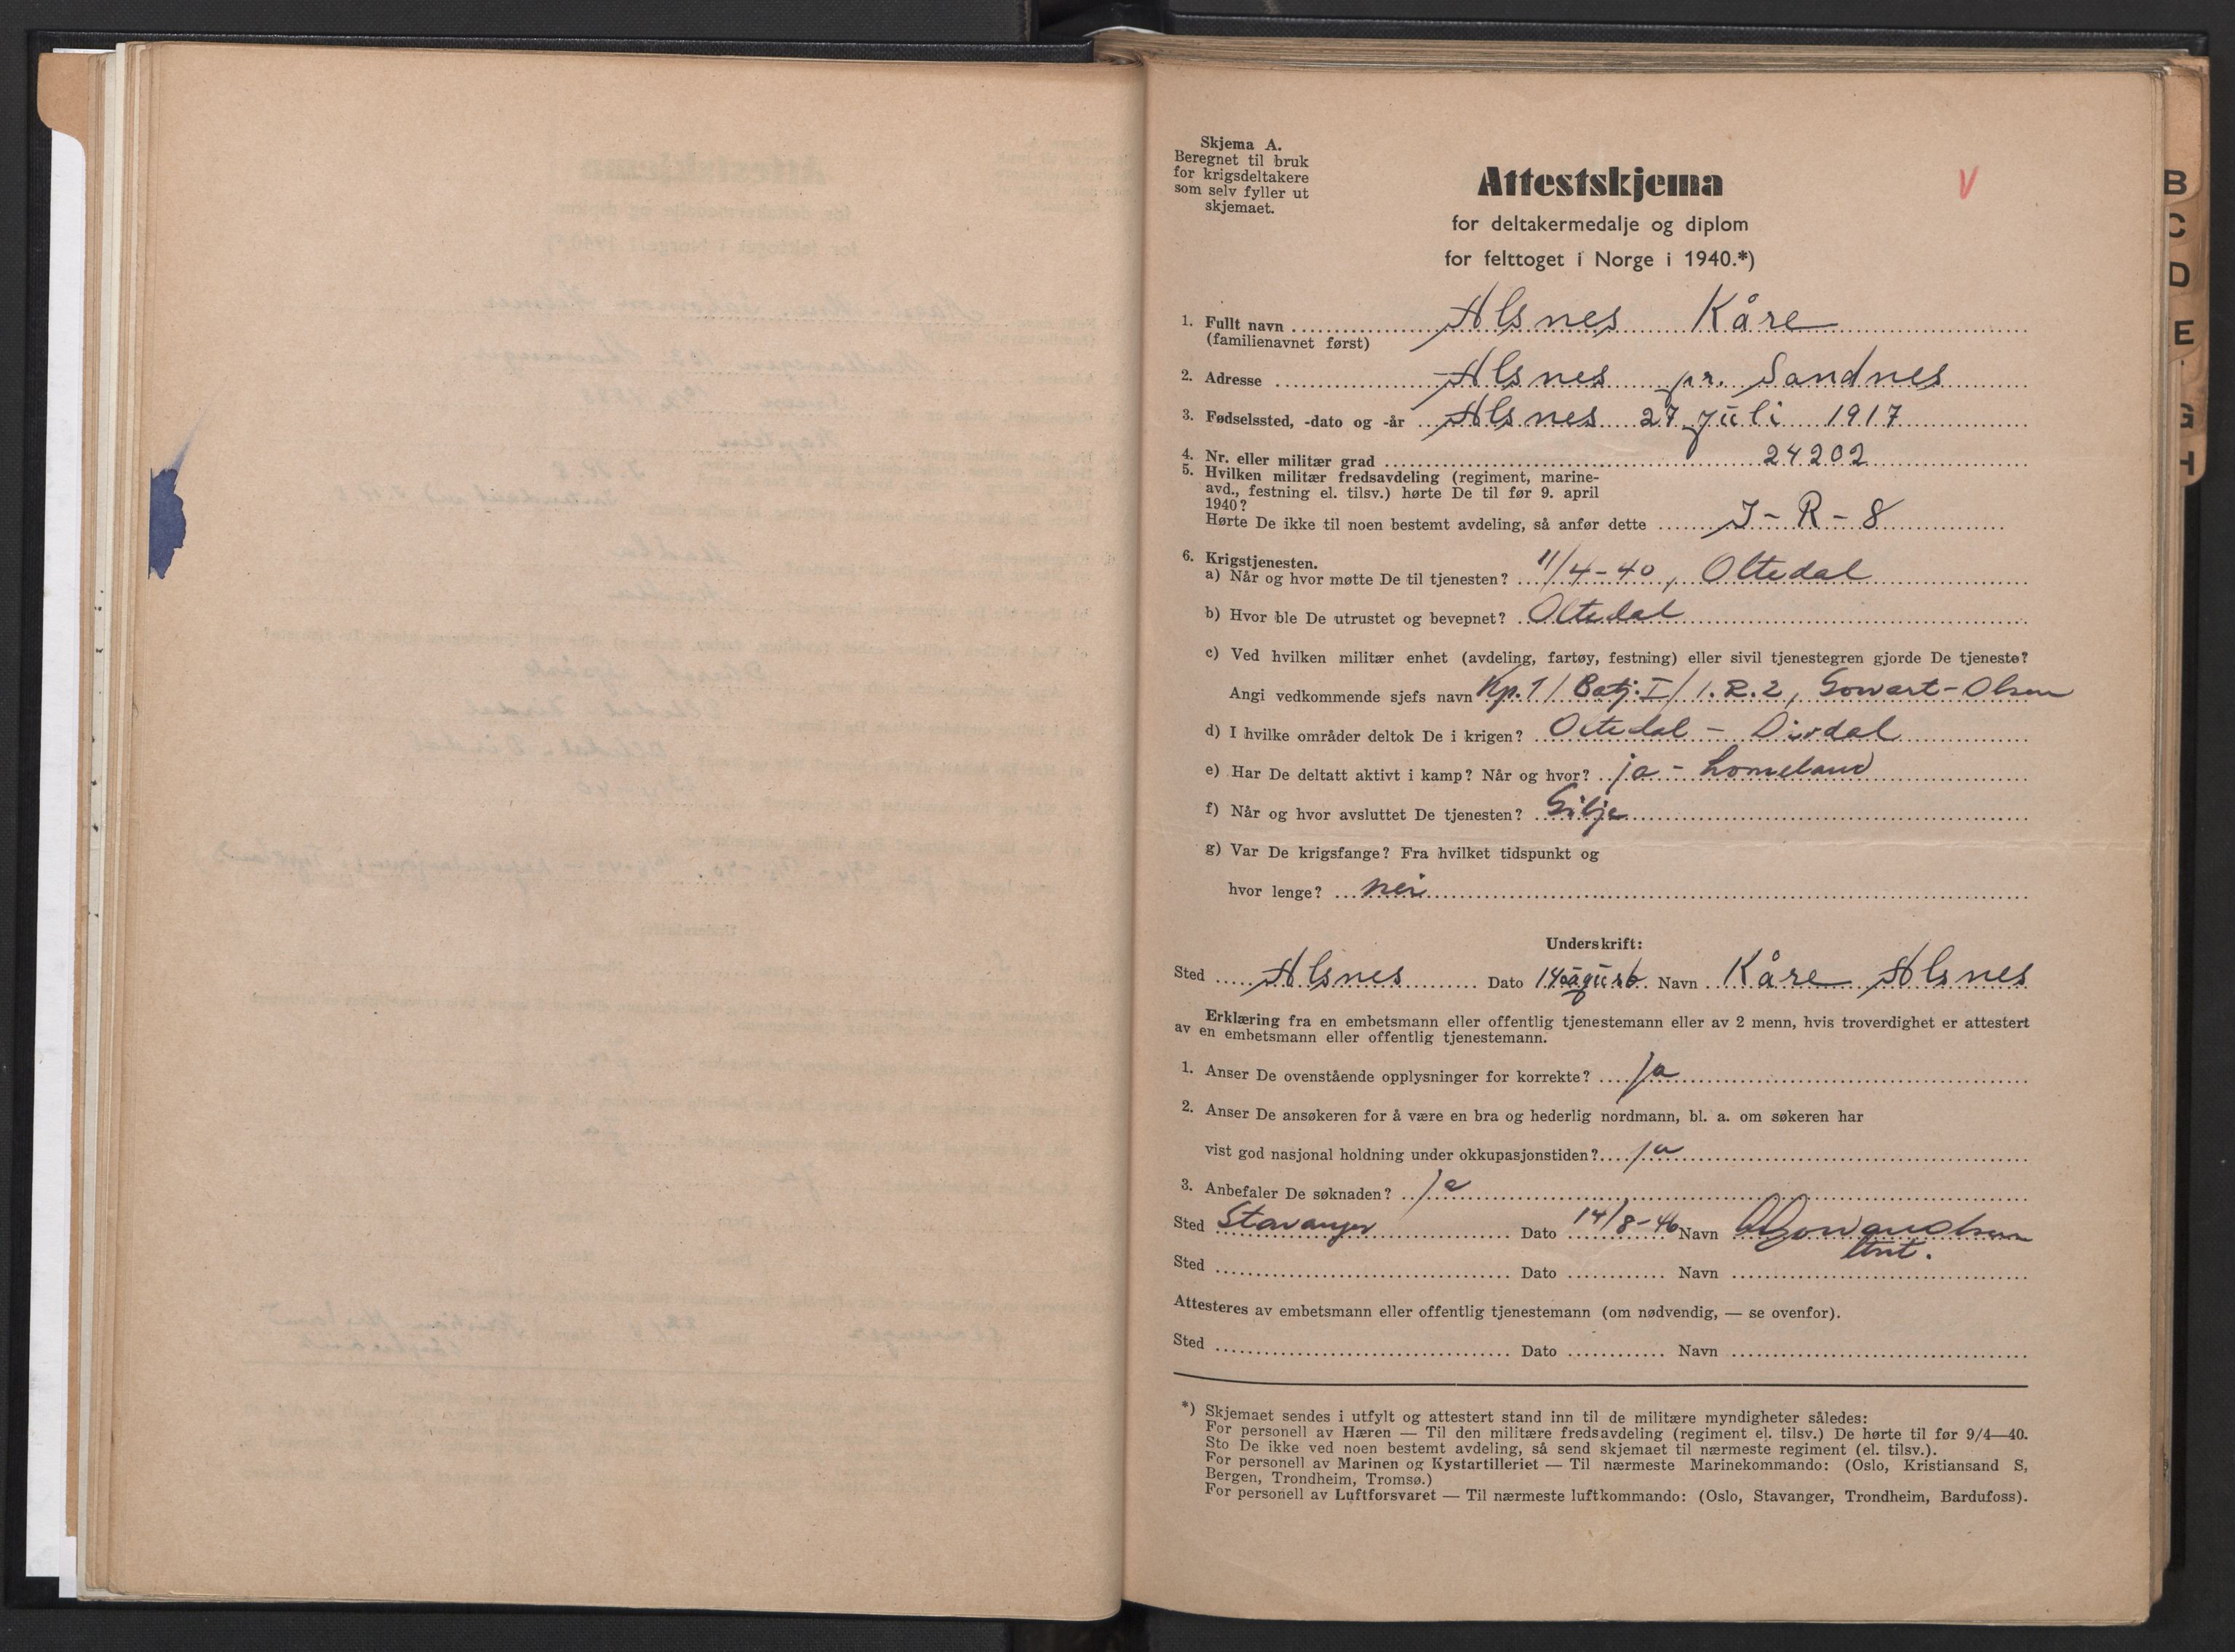 Skjema A.
Beregnet til bruk
for krigsdeltakere
som selv fyller ut
skjemaet.
Attestskjema
V
for deltakermedalje og diplom
for felttoget i Norge i 1940.*)
1. Fullt navn Alsnes Kåre
(familienavnet først)
2. Adresse Alsnes pr. Sandnes
3. Fødselssted, -dato og -år Alsnes 27 juli 1917
4. Nr. eller militær grad 24202
5. Hvilken militær fredsavdeling (regiment, marine-
avd., festning el. tilsv.) hørte De til før 9. april
1940?
Hørte De ikke til noen bestemt avdeling, så anfør dette J-R-8
6. Krigstjenesten.
a) Når og hvor møtte De til tjenesten? 11/4-40, Oltedal
b) Hvor ble De utrustet og bevepnet? Oltedal
c) Ved hvilken militær enhet (avdeling, fartøy, festning) eller sivil tjenestegren gjorde De tjeneste?
Angi vedkommende sjefs navn Kp. 1/ Batj. I/ I.R.2, Gowart-Olsen
d) I hvilke områder deltok De i krigen? Oltedal - Dirdal
e) Har De deltatt aktivt i kamp? Når og hvor? ja - Lomeland
f) Når og hvor avsluttet De tjenesten? Gilje
g) Var De krigsfange? Fra hvilket tidspunkt og
hvor lenge? nei
Underskrift:
Sted Alsnes Dato 14 Navn Kåre Alsnes
Erklæring fra en embetsmann eller offentlig tjenestemann eller av 2 menn, hvis troverdighet er attestert
av en embetsmann eller offentlig tjenestemann.
1. Anser De ovenstående opplysninger for korrekte? ja
2. Anser De ansøkeren for å være en bra og hederlig nordmann, bl. a. om søkeren har
vist god nasjonal holdning under okkupasjonstiden? ja
3. Anbefaler De søknaden? ja
Sted Stavanger Dato 14/8-46 Navn
Sted Dato Navn
Attesteres av embetsmann eller offentlig tjenestemann (om nødvendig, — se ovenfor).
Sted Dato Navn
*) Skjemaet sendes i utfylt og attestert stand inn til de militære myndigheter således:
For personell av Hæren — Til den militære fredsavdeling (regiment el. tilsv.) De hørte til før 9/4—40.
Sto De ikke ved noen bestemt avdeling, så send skjemaet til nærmeste regiment (el. tilsv.).
For personell av Marinen og Kystartilleriet — Til nærmeste Marinekommando: (Oslo, Kristiansand S,
Bergen, Trondheim, Tromsø.)
For personell av Luftforsvaret — Til nærmeste luftkommando: (Oslo, Stavanger, Trondheim, Bardufoss).
B
C
D
E
G
H